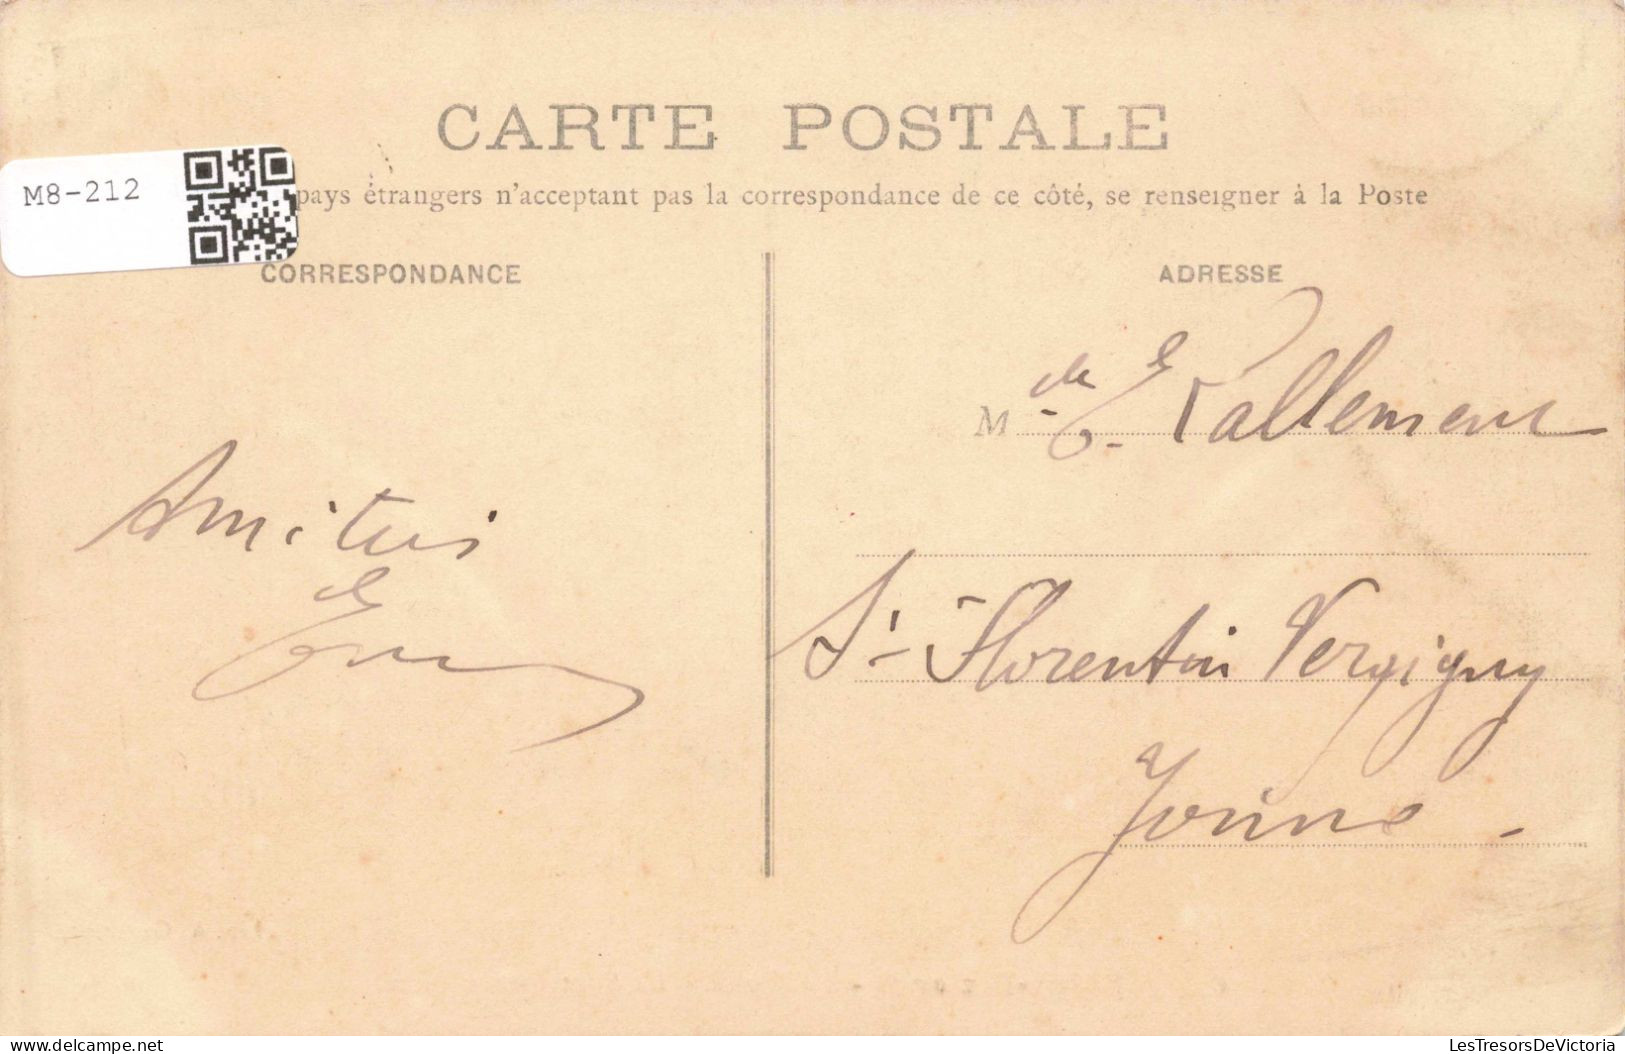 CARTE POSTALE
M8-212
pays étrangers n'acceptant pas la correspondance de ce côté, se renseigner à la Poste
CORRESPONDANCE
ADRESSE
Mde E. Lallement
Amitiés
St-Florentin Vergigny
Yonne -
Delcampe.net
LesTresorsDeVictoria